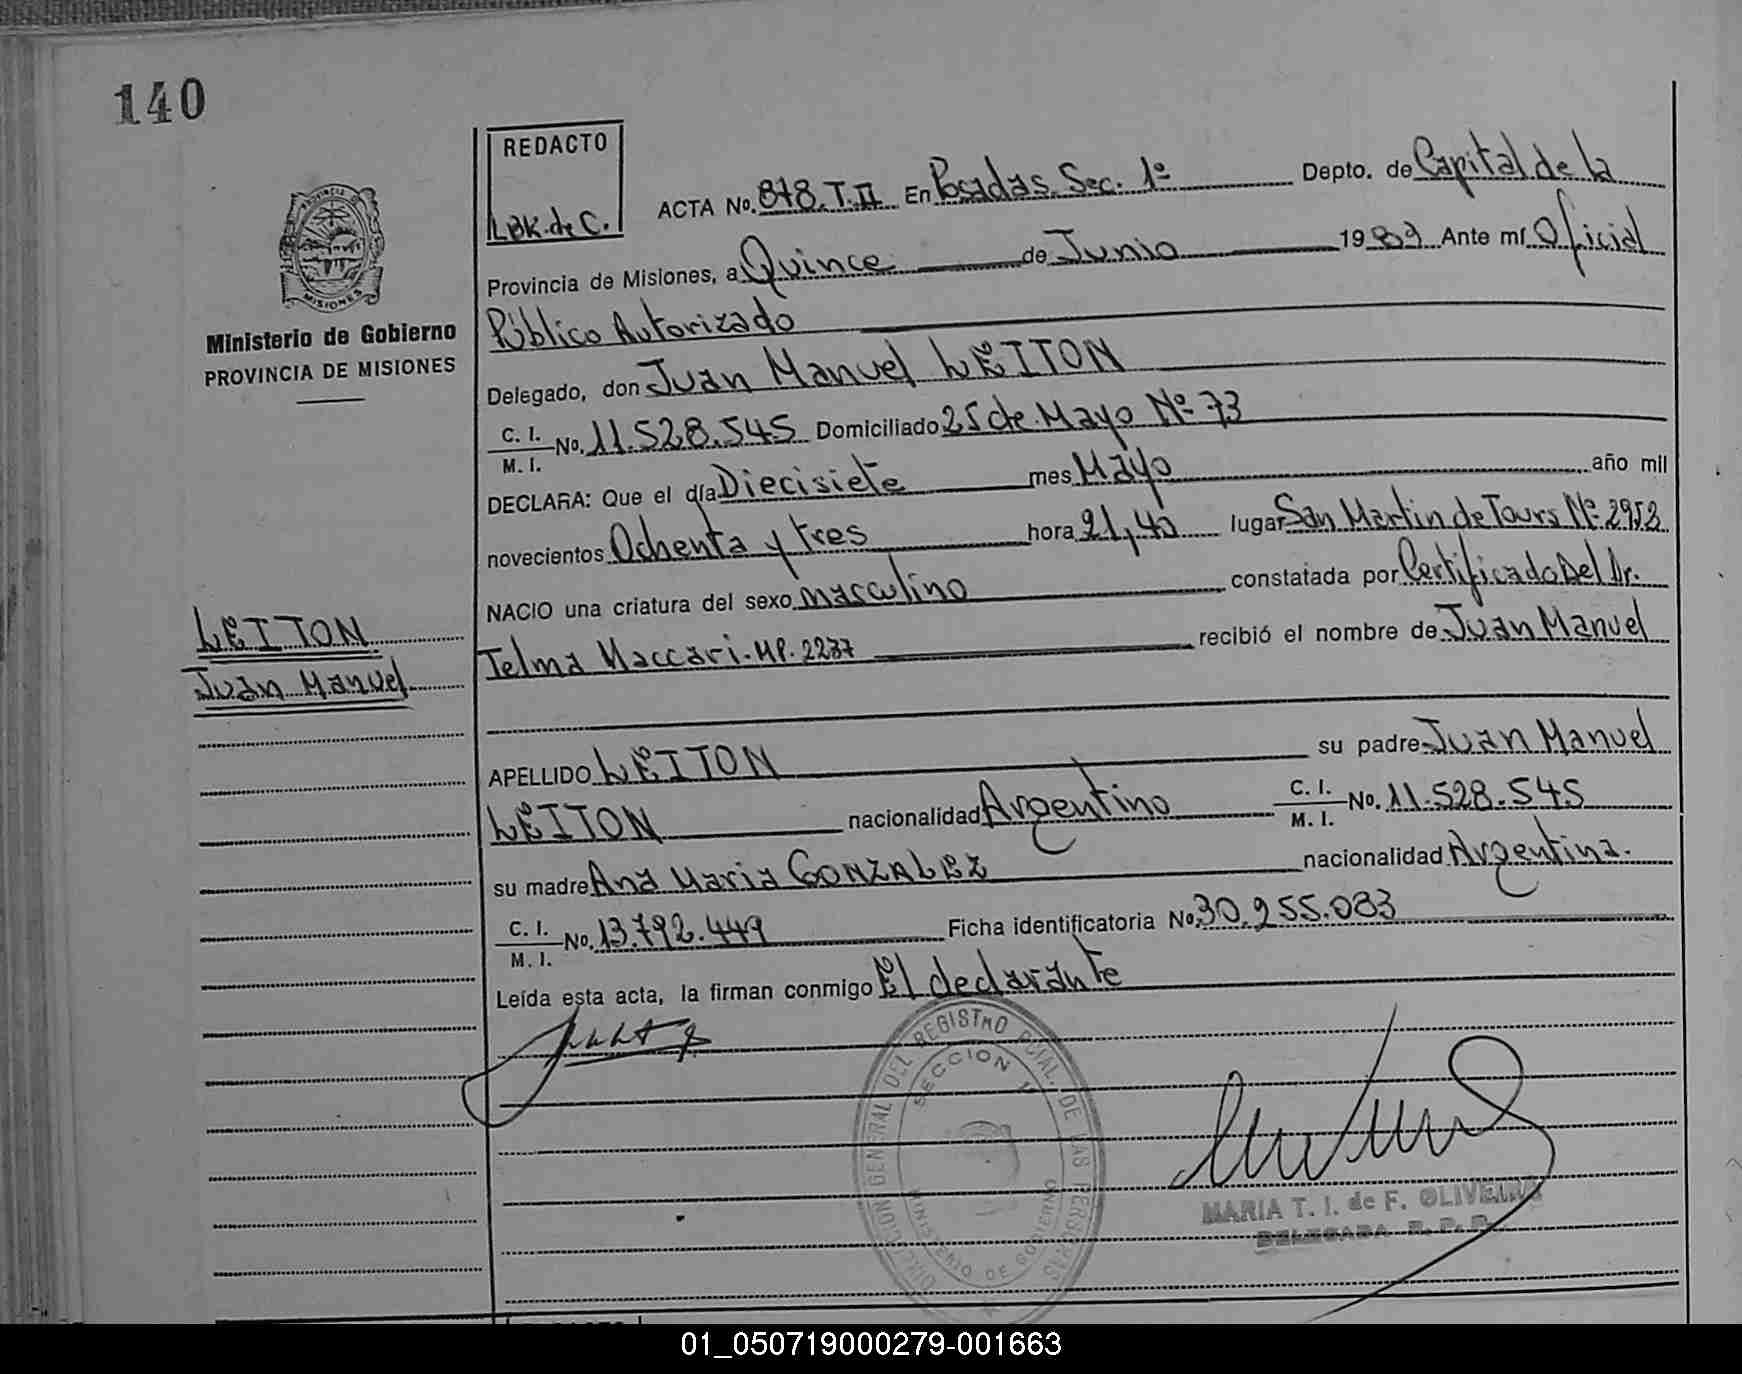 140
REDACTO
LBK. de C.
ACTA No. 878. T. II En Posadas. Sec. 1º Depto. de Capital de la
Provincia de Misiones, a Quince de Junio 1983 Ante mí Oficial
Público Autorizado
Delegado, don Juan Manuel LEITON
C. I.
M. I. No. 11.528.545 Domiciliado 25 de Mayo Nº 73
DECLARA: Que el día Diecisiete mes Mayo año mil
novecientos Ochenta y tres hora 21,40 lugar San Martin de Tours Nº 2952
NACIO una criatura del sexo masculino constatada por Certificado Del Dr.
Telma Maccari. MP. 2237 recibió el nombre de Juan Manuel
APELLIDO LEITON su padre Juan Manuel
LEITON nacionalidad Argentino C. I.
M. I. No. 11.528.545
su madre Ana Maria GONZALEZ nacionalidad Argentina.
C. I.
M. I. No. 13.792.449 Ficha identificatoria No. 30.255.083
Leída esta acta, la firman conmigo El declarante
PROVINCIA DE
MISIONES
Ministerio de Gobierno
PROVINCIA DE MISIONES
LEITON
Juan Manuel
DIRECCION GENERAL DEL REGISTRO PCIAL. DE LAS PERSONAS
SECCION 1ª
MINISTERIO DE GOBIERNO
MARIA T. I. de F. OLIVEIRA
DELEGADA R. P. P.
01_050719000279-001663